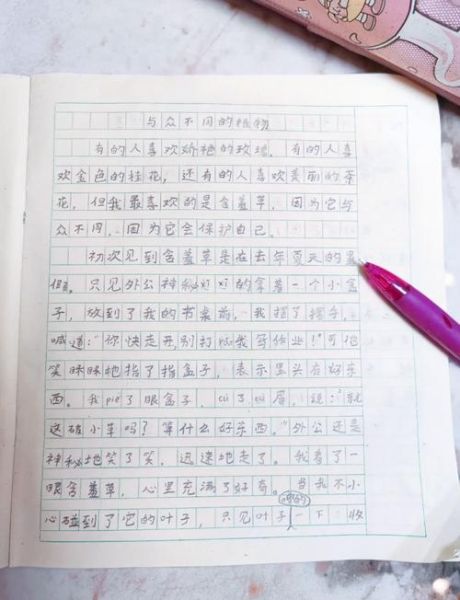 与众不同的植物
有的人喜欢娇艳的玫瑰，有的人喜
欢金色的桂花，还有的人喜欢美丽的茶
花，但我最喜欢的是含羞草，因为它与
众不同，因为它会保护自己。
初次见到含羞草是在去年夏天的暑
假。只见外公神秘兮兮的拿着一个小盒
子，放到了我的书桌前，我摆了摆手，
喊道："你快走开，别打扰我写作业！"可他
笑眯眯地指了指盒子，表示里头有好东
西。我piē了眼盒子，cù了cù眉，说："就
这破小草吗？算什么好东西。"外公还是
神秘地笑了笑，迅速地走了。我看了一
眼含羞草，心里充满了好奇。当我不小
心碰到了它的叶子，只见叶子一下收